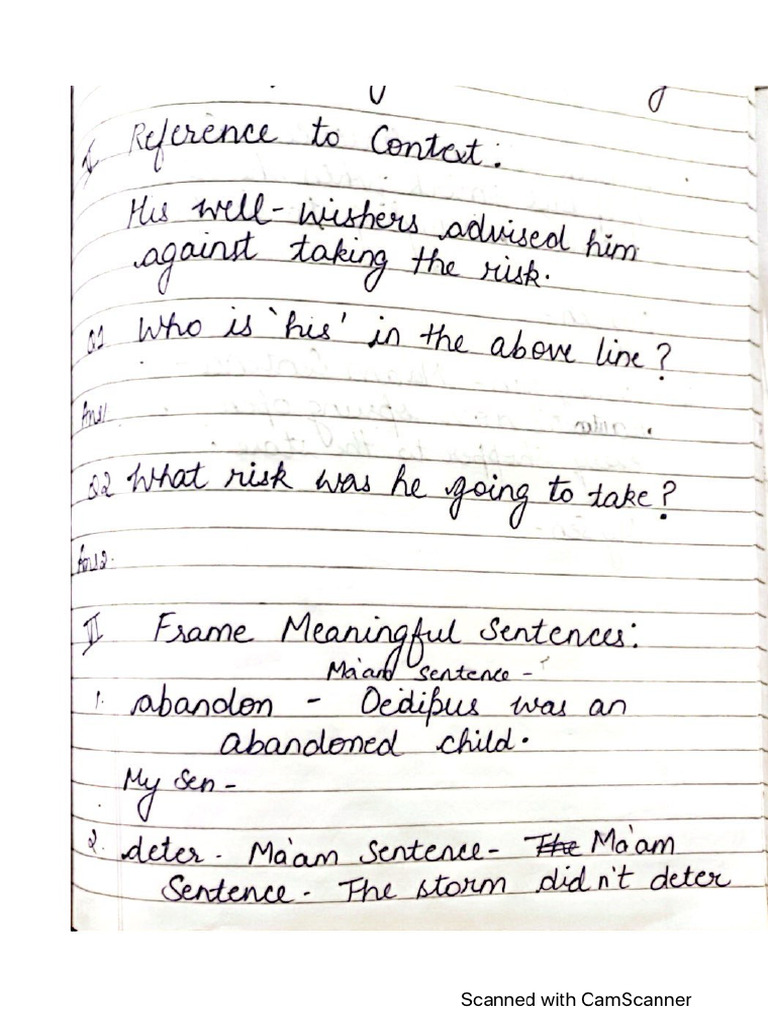 I Reference to Context:
His well-wishers advised him
against taking the risk.
Q1 Who is 'his' in the above line?
Ans1
Q2 What risk was he going to take?
Ans2.
II Frame Meaningful Sentences:
Ma'am Sentence -
1. abandon - Oedipus was an
abandoned child.
My Sen -
2. deter - Ma'am Sentence - The Ma'am
Sentence - The storm didn't deter
Scanned with CamScanner